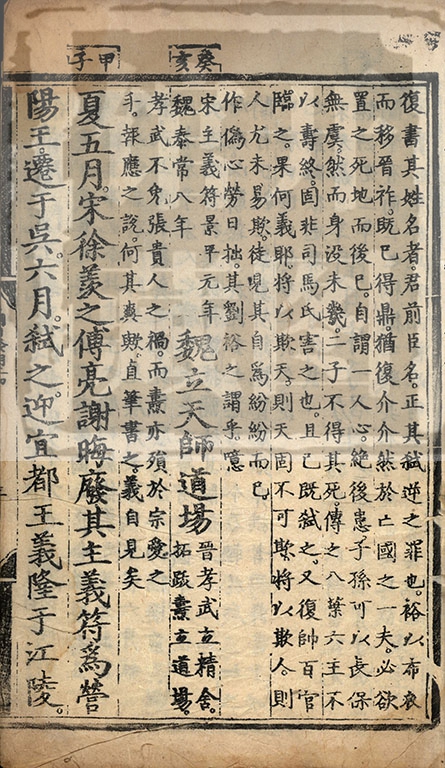 復書其姓名者。君前臣名。正其弑逆之罪也。裕以布衣
而移晉祚。既已得鼎。猶復介介然於亡國之一夫。必欲
置之死地而後已。自謂一人心。絶後患。子孫可以長保
無虞。然而身没未幾。二子不得其死。傳之八葉。六主不
以壽終。固非司馬氏害之也。且已既弑之。又復帥百官
臨之。果何義耶。將以欺天。則天固不可欺。將以欺人。則
人尤未易欺。徒見其自爲紛紛而已
作僞心勞日拙。其劉裕之謂乎。噫
癸亥
宋主義符景平元年
魏泰常八年
魏立天師道場
晉孝武立精舍。
拓跋燾立道場。
孝武不免張貴人之禍。而燾亦殞於宗愛之
手。報應之說。何其爽歟。直筆書之。義自見矣
甲子
夏五月。宋徐羨之傅亮謝晦廢其主義符爲營
陽王。遷于吳。六月。弑之。迎宜都王義隆于江陵。